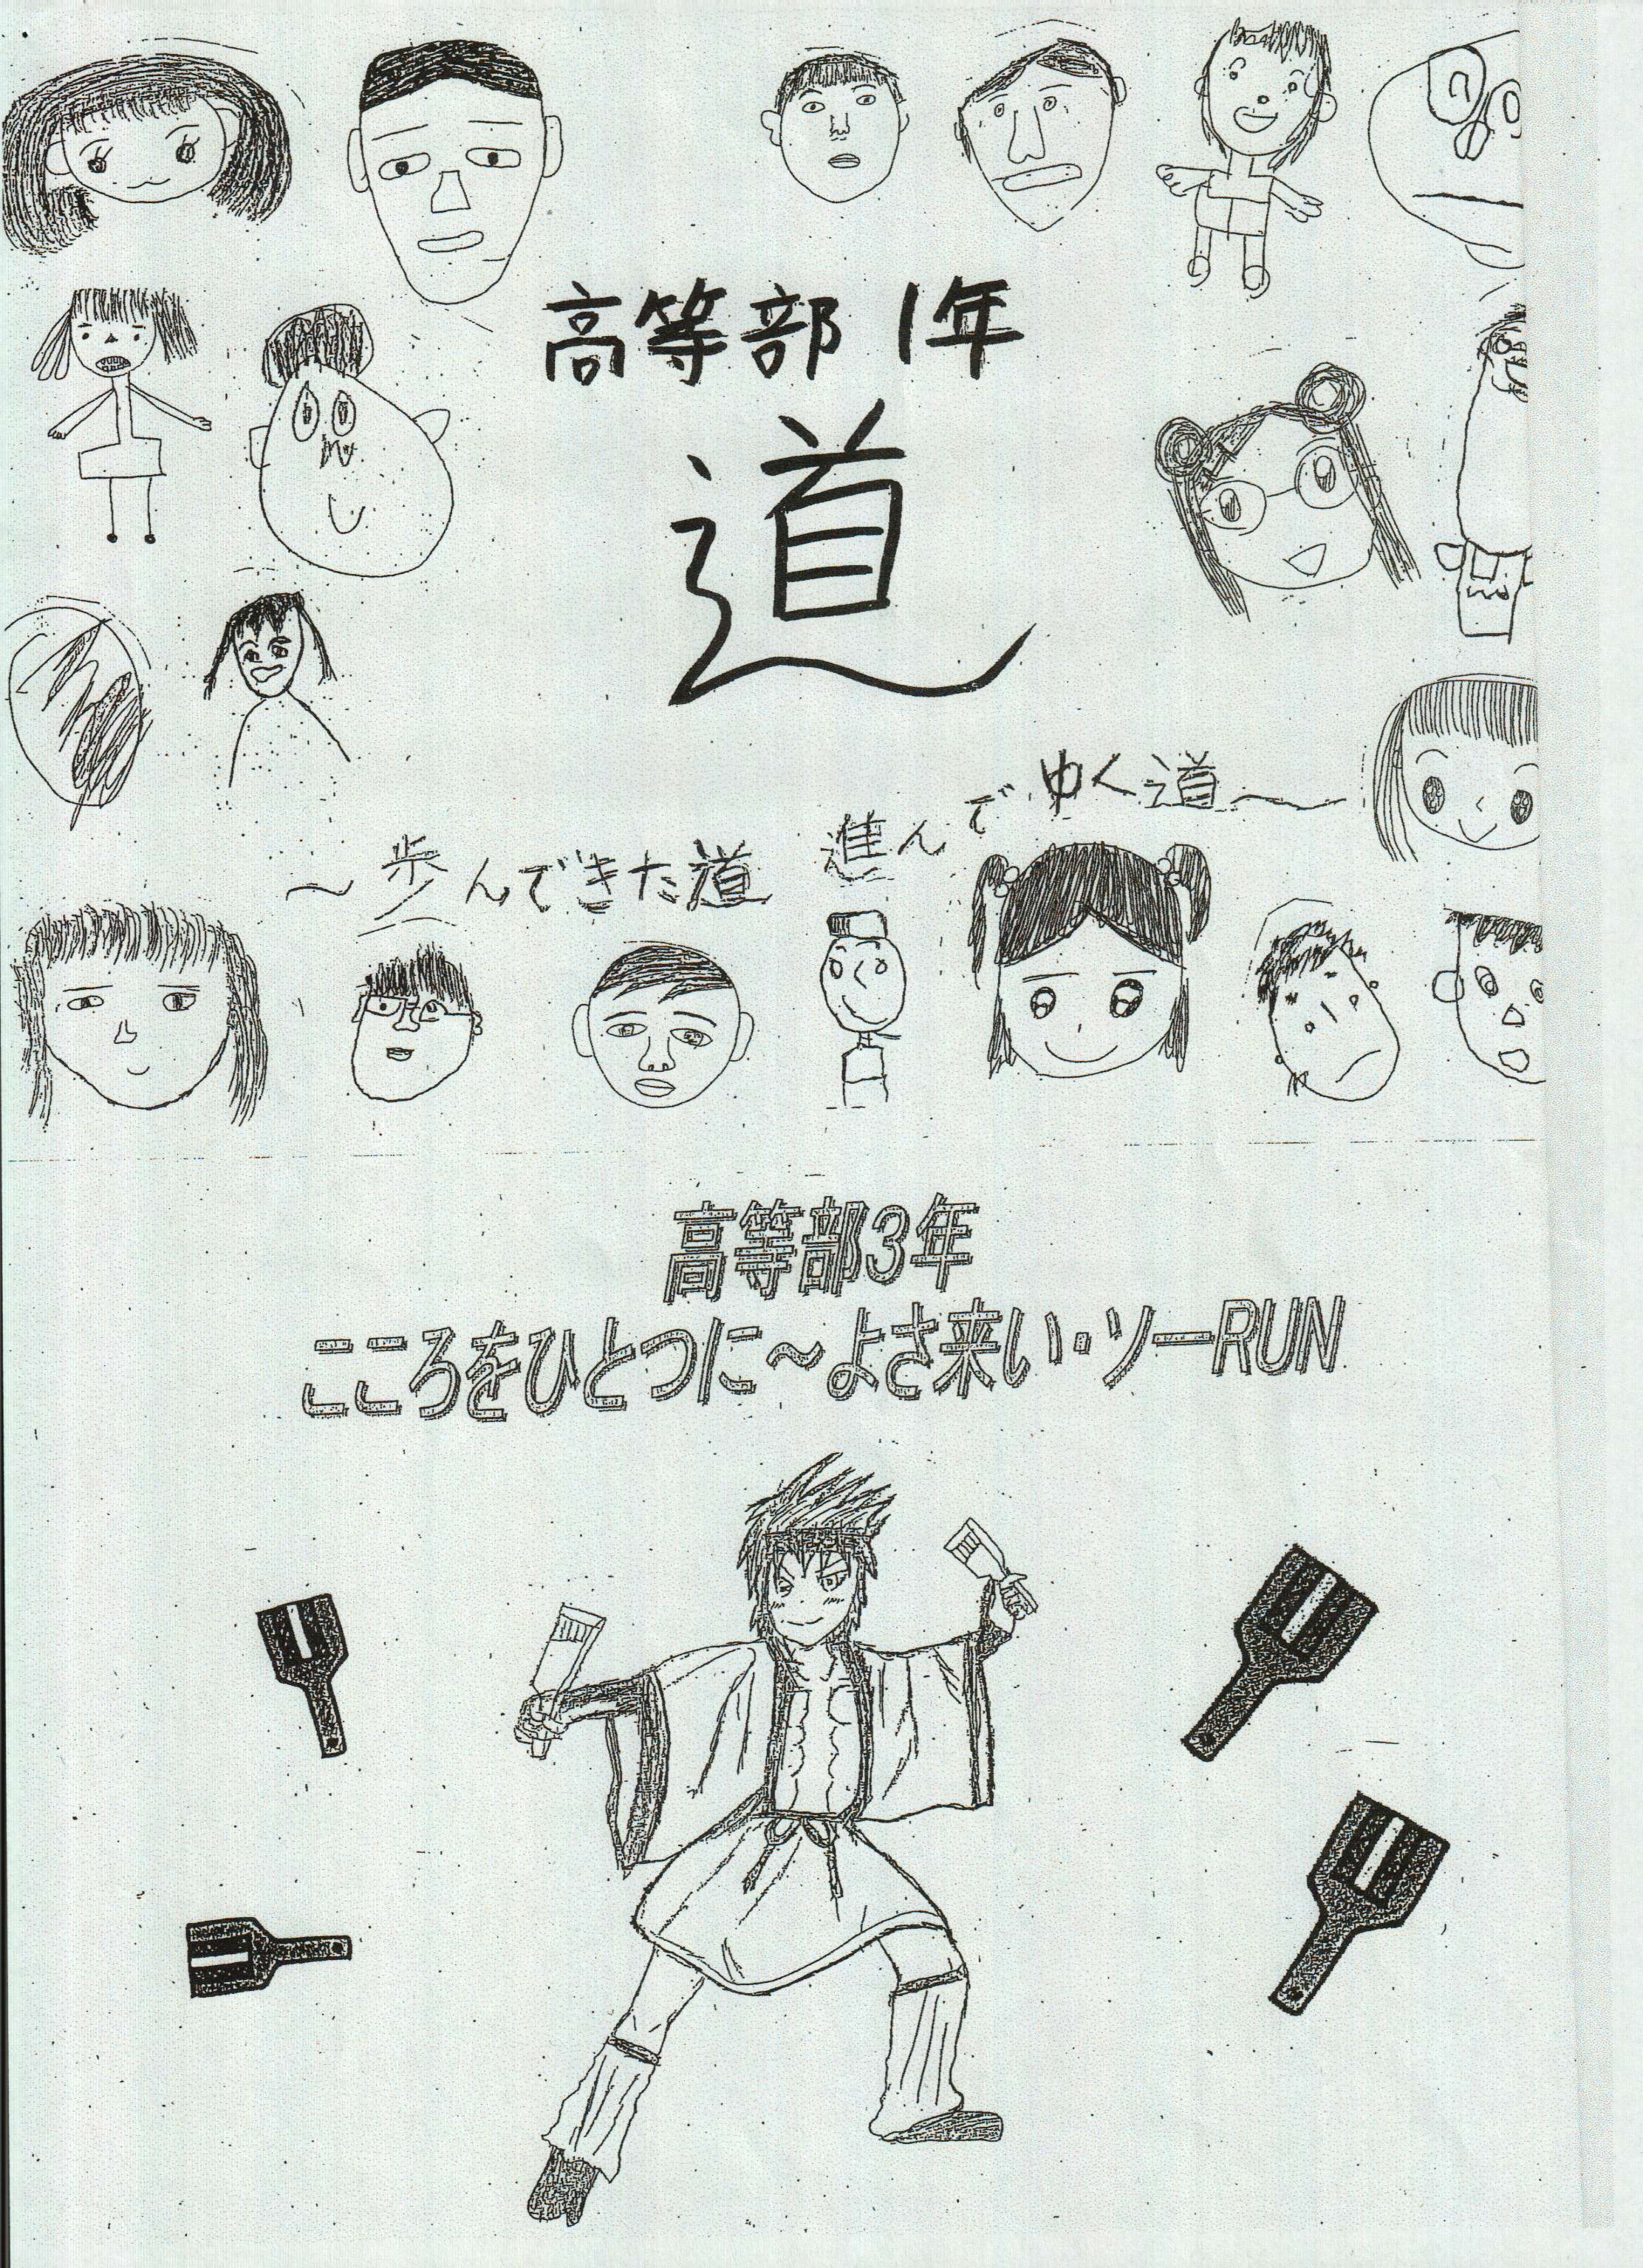 高等部1年
道
～歩んできた道 進んでゆく道～
高等部3年
こころをひとつに～よさ来い・ソーRUN